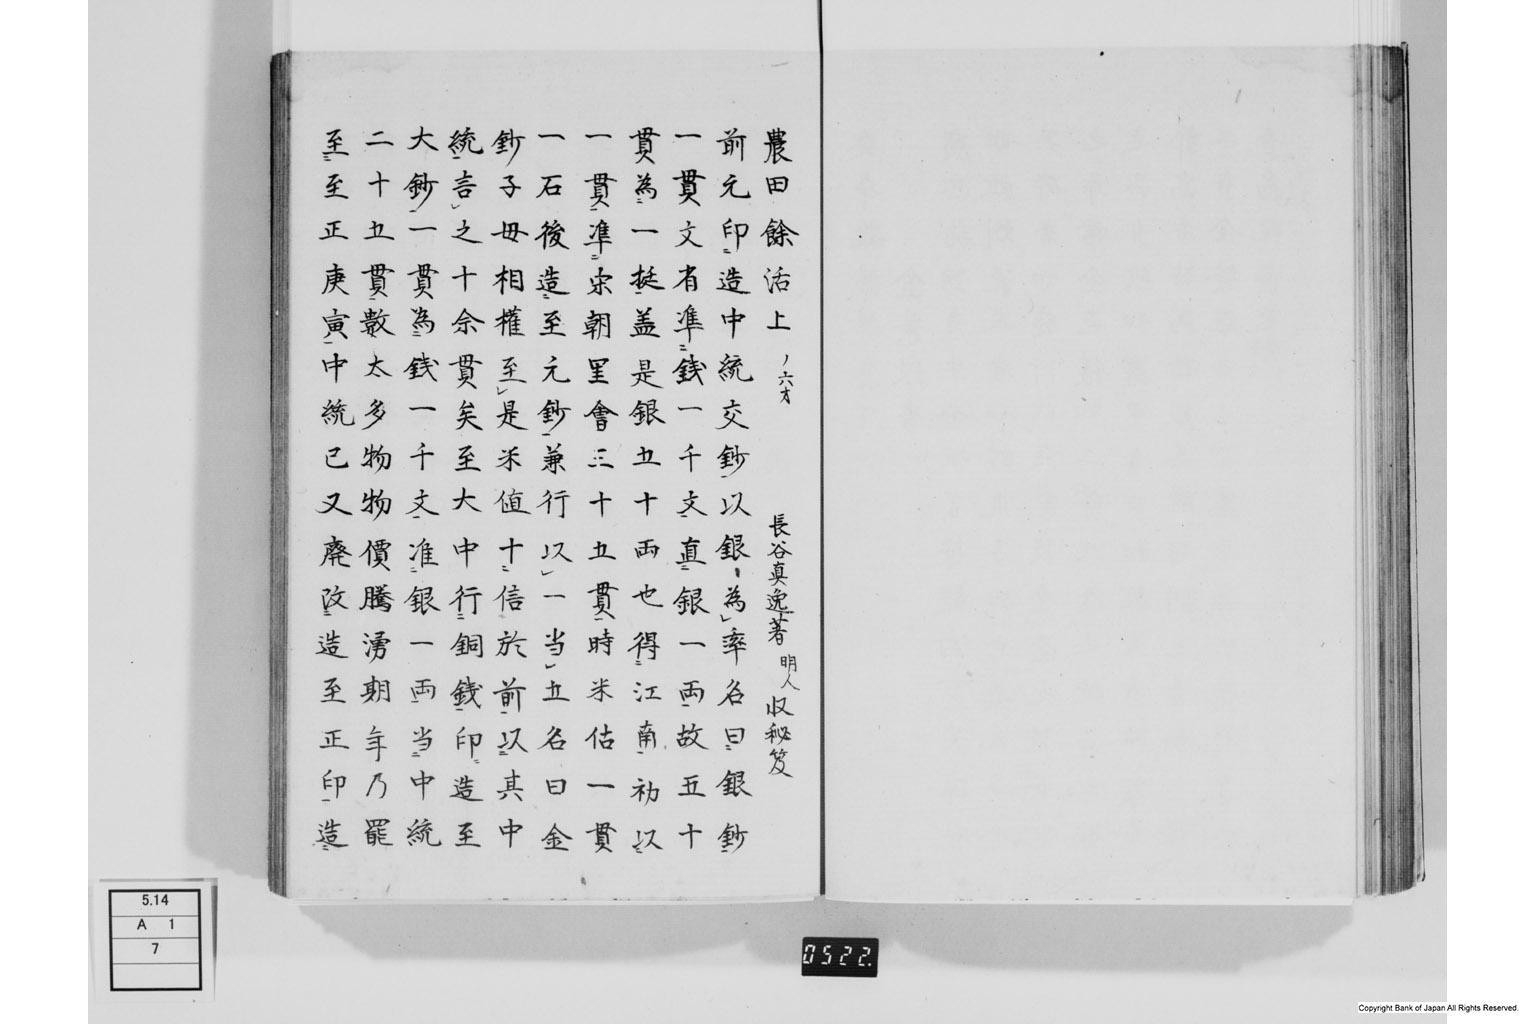 農田餘話上 ノ六才 長谷真逸著 明人 収秘笈
前元印造中統交鈔以銀為率名曰銀鈔
一貫文省準銭一千文直銀一両故五十
貫為一挺盖是銀五十両也得江南初以
一貫準宋朝里會三十五貫時米估一貫
一石後造至元鈔兼行以一当五名曰金
鈔子母相権至是米値十信於前以其中
統言之十余貫矣至大中行銅銭印造至
大鈔一貫為銭一千文准銀一両当中統
二十五貫散太多物物價騰湧期年乃罷
至至正庚寅中統已又廃改造至正印造
5.14
A 1
7
0522.
Copyright Bank of Japan All Rights Reserved.